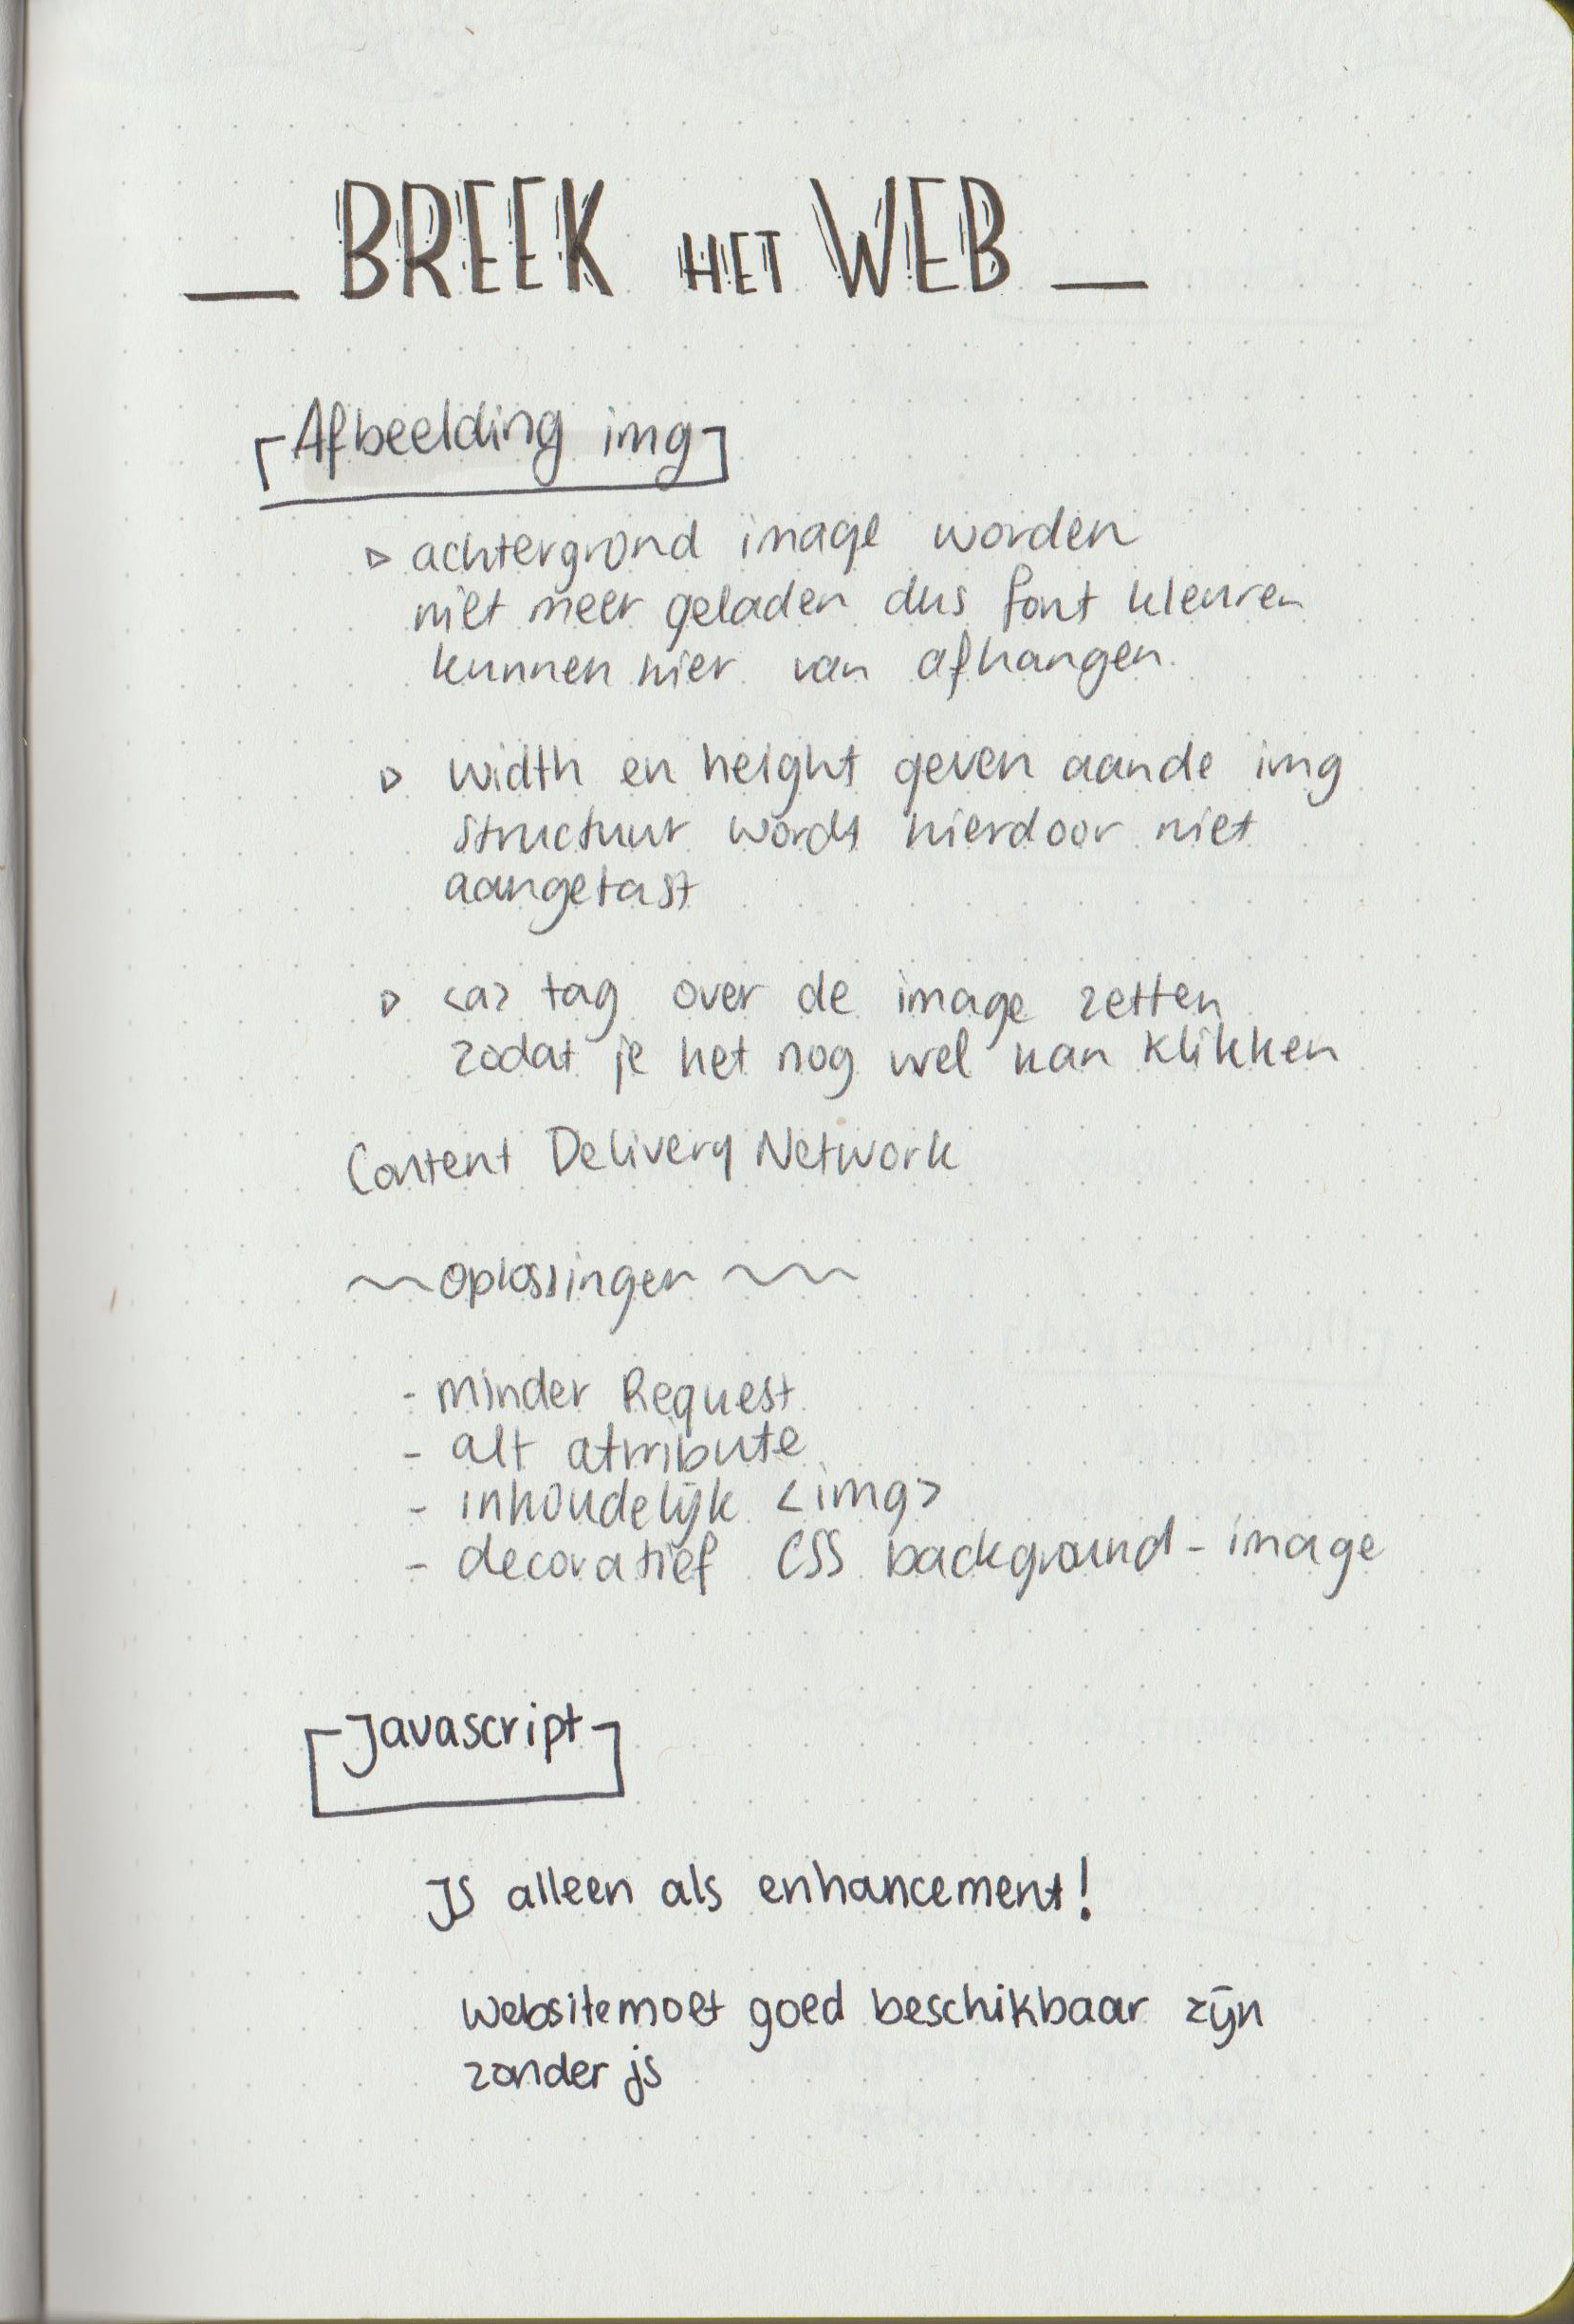 — BREEK HET WEB —
Afbeelding img
▷ achtergrond image worden
niet meer geladen dus font kleuren
kunnen hier van afhangen.
▷ width en height geven aan de img
structuur wordt hierdoor niet
aangetast
▷ <a> tag over de image zetten
zodat je het nog wel kan klikken
Content Delivery Network
~~ oplossingen ~~~
- minder Request
- alt attribute
- inhoudelijk <img>
- decoratief CSS background-image
Javascript
JS alleen als enhancement!
website moet goed beschikbaar zijn
zonder js